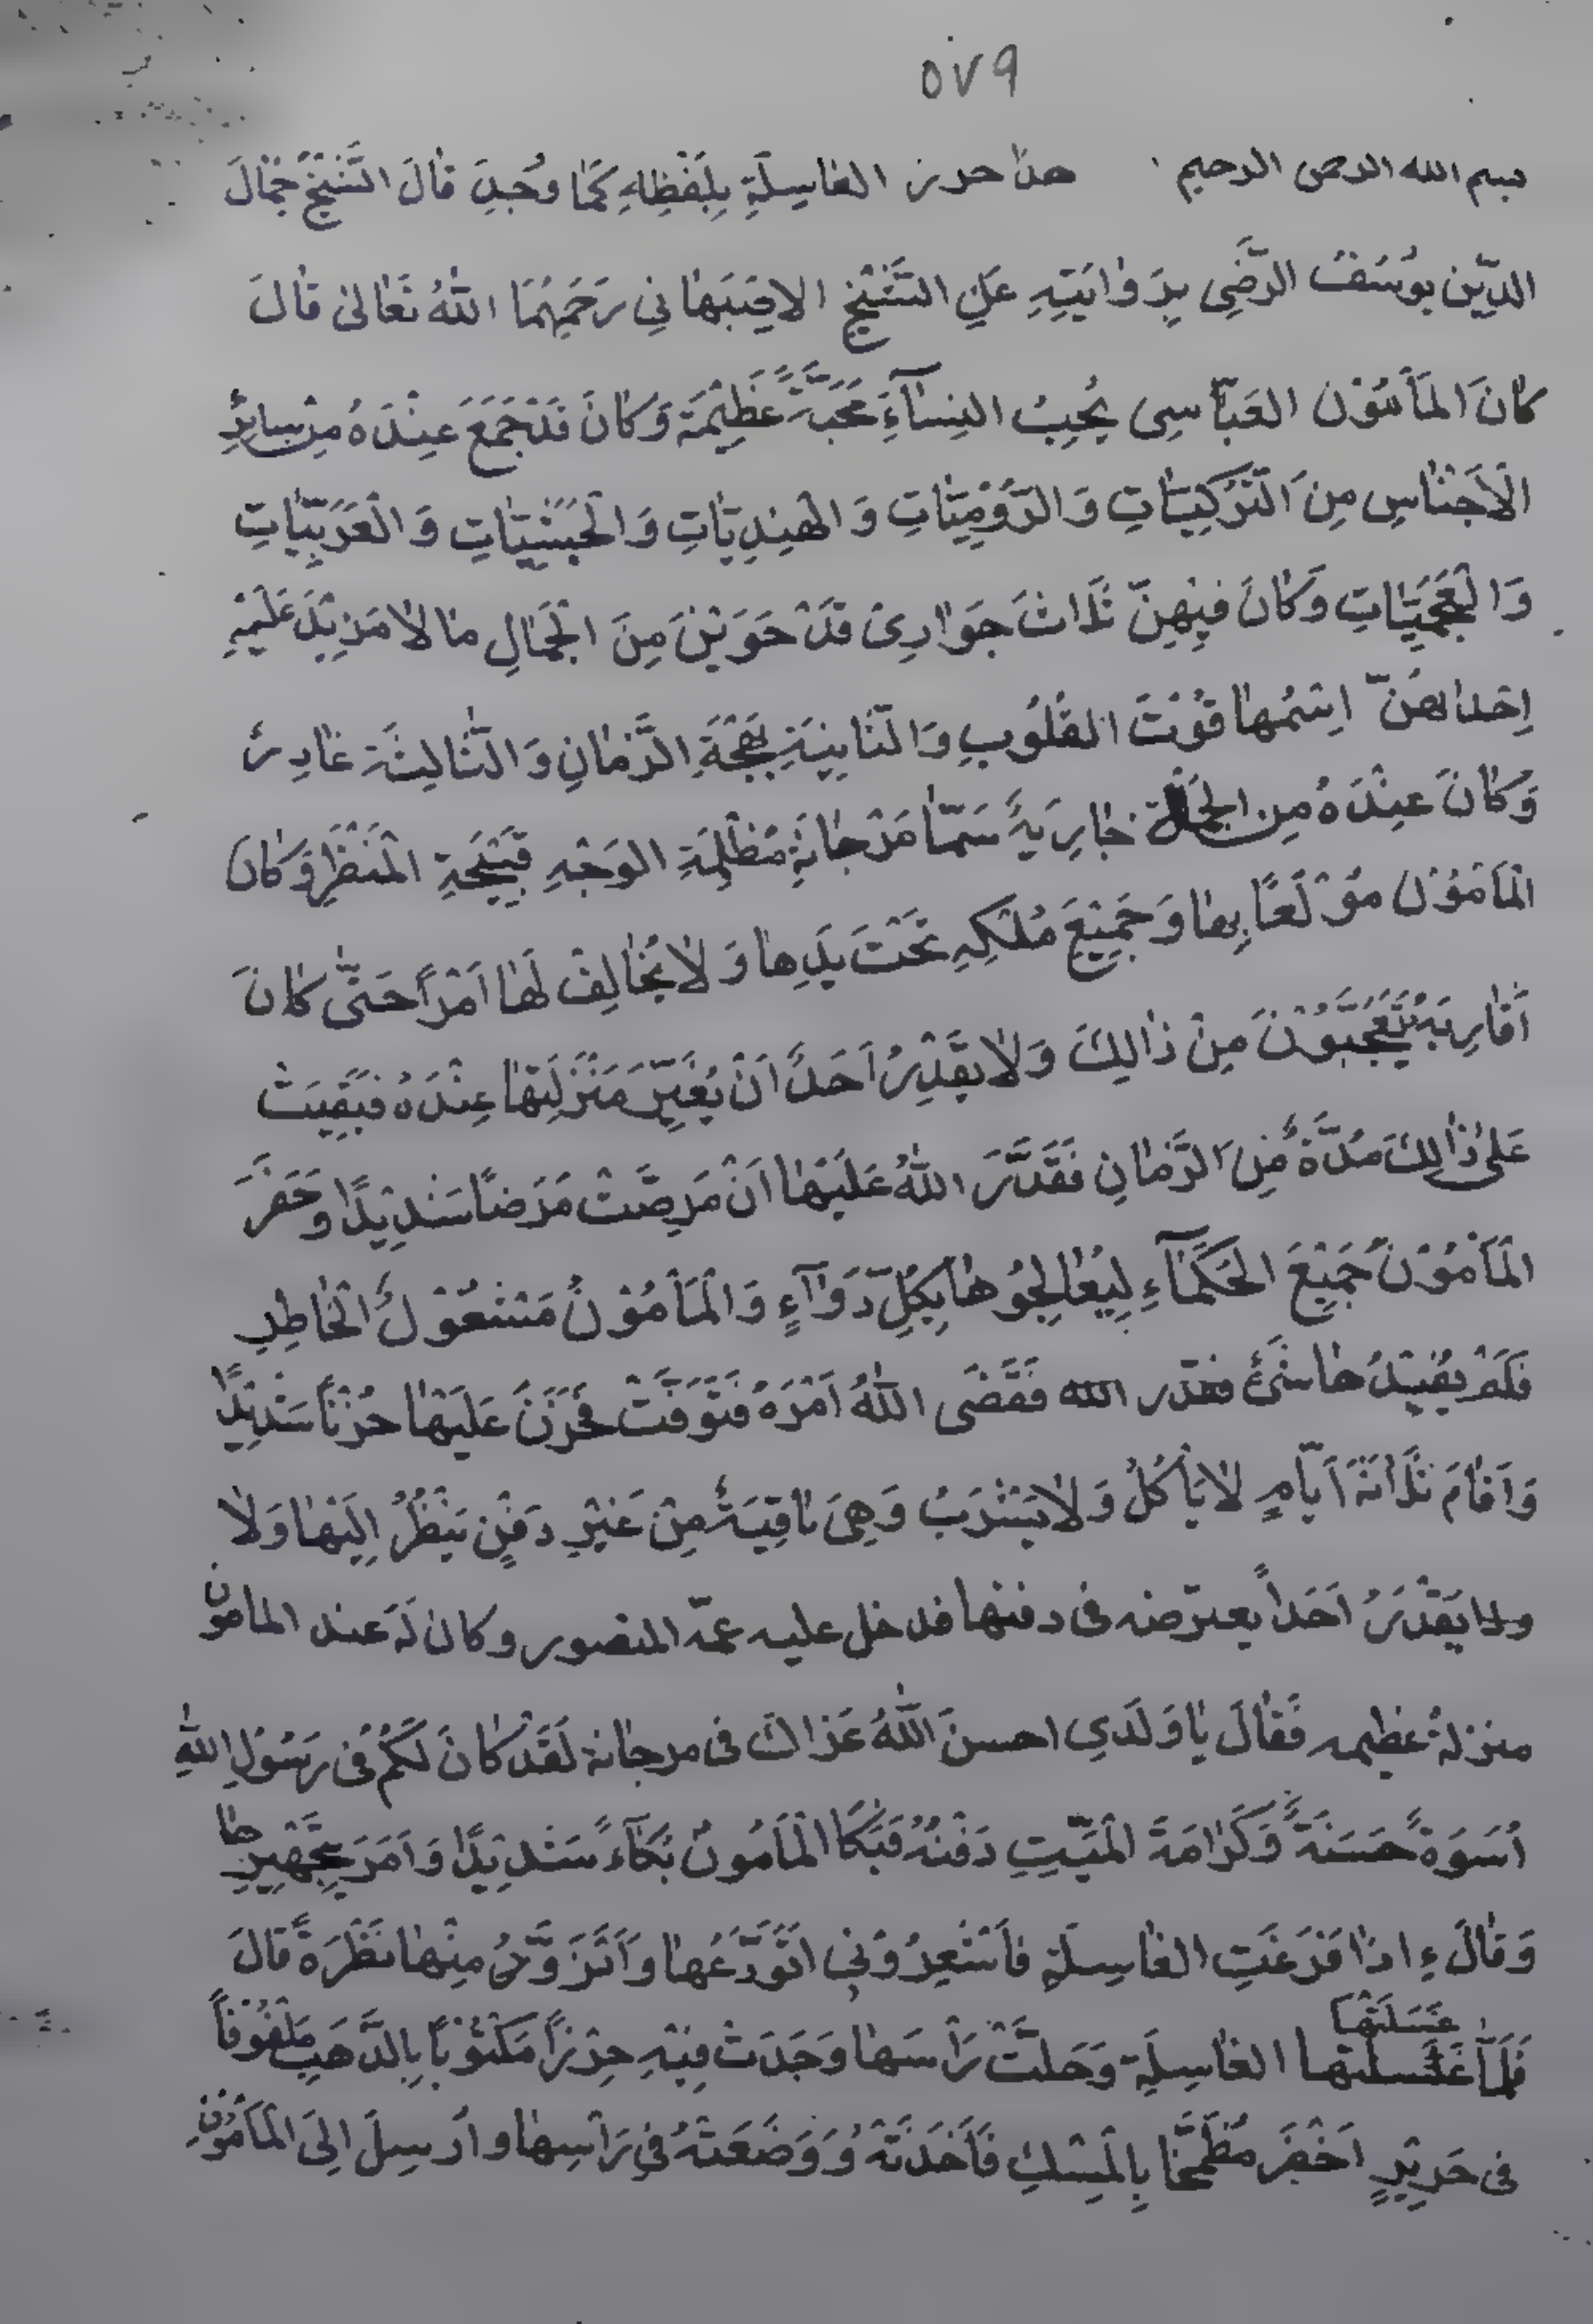 ٥٧٩
بسم الله الرحمن الرحيم هذا حرز الغاسِلَةِ بِلَفْظِهِ كَمَا وُجِدَ قَالَ الشَّيْخُ جَمَالَ
الدِّين يُوسُفُ الرَّضِى بِرِوَايَتِهِ عَنِ الشَّيْخِ الاصبَهَانِى رَحِمَهُمَا اللهُ تَعَالىٰ قَالَ
كَانَ المَأْمُوْن العَبَّاسِى يُحِبُ النِسَآءَ مَحَبَّةً عَظِيْمَةً وَكَانَ قَدْ جَمَعَ عِنْدَهُ مِنْ سَائِرِ
الْاَجْنَاسِ مِنَ التُّرْكِيَّاتِ وَالرُّوْمِيَّاتِ وَالْهِنْدِيَّاتِ وَالْحَبَشِيَّاتِ وَالْعَرَبِيَّاتِ
وَالْعَجَمِيَّاتِ وَكَانَ فِيْهِنَّ ثَلَاثَ جَوَارِىْ قَدْ حَوَيْنَ مِنَ الْجَمَالِ مَا لَا مَزِيْدَ عَلَيْهِ
اِحْدَاهُنَّ اِسْمُهَا قُوْتَ القُلُوبِ وَالثَّانِيَةِ بَهْجَةَ الزَّمَانِ وَالثَّالِثَةِ غَادِرْ
وَكَانَ عِنْدَهُ مِن الجملة جَارِيَةً سَمّا مَرْجَانَةِ مُظْلِمَةِ الوَجْهِ قَبِيْحَةِ الْمَنْظَرِ وَكَانَ
الْمَأْمُوْن مُوْلَعًا بِهَا وَجَمِيْعَ مُلْكِهِ تَحْتَ يَدِهَا وَلَا يُخَالِفْ لَهَا اَمْرًا حَتّٰى كَانَ
اَقَارِبَهُ يَتَعَجَّبُوْنَ مِنْ ذَالِكَ وَلَا يَقْدِرُ اَحَدًا اَنْ يُغَيِّرَ مَنْزَلَتَهَا عِنْدَهُ فَبَقِيَتْ
عَلىٰ ذَالِكَ مُدَّةً مِّنَ الزَّمَانِ فَقَدَّرَ اللهُ عَلَيْهَا اَنْ مَرِضَتْ مَرَضًا شَدِيْدًا وَحَضَرَ
الْمَأْمُوْنُ جَمِيْعَ الحُكَمَآءِ لِيُعَالِجُوهَا بِكُلِّ دَوَآءٍ وَالْمَأْمُوْنُ مَشْغُوْلُ الْخَاطِرِ
فَلَمْ يُفِيْدُهَا شَىْءٌ فقدّر الله فَقَضَى اللهُ اَمْرَهُ فَتَوَفَّتْ فَحَزَنَ عَلَيْهَا حُزْنًا شَدِيْدًا
وَاَقَامَ ثَلَاثَةَ اَيَّامٍ لَا يَأْكُلُ وَلَا يَشْرَبُ وَهِىَ بَاقِيَةٌ مِنْ غَيْرِ دَفْنٍ يَنْظُرُ اِلَيْهَا وَلَا
ولا يَقْدِرُ اَحَداً يعترضه فى دفنها فدخل عليه عمّه المنصور وكان لَهُ عند المامون
منزلةٌ عظيمه فَقَالَ يَا وَلَدِى احسنَ اللهُ عَزَاكَ فى مرجانة لَقَدْ كَانَ لَكُمْ فى رَسُوْلِ اللهِ
اُسْوَةً حَسَنَةً وَكَرَامَةَ الْمَيِّتِ دَفْنُهُ فَبَكَا الْمَأمُونُ بُكَآءً شَدِيْدًا وَاَمَرَ بِتَجْهِيزِهَا
وَقَالَ ءِاذَا فَرَغَتِ الغَاسِلَةِ فَاشْعِرُوْنِى اَتَوَدَّعُهَا وَاَتَزَوَّدُ مِنْهَا نَظْرَةً قَالَ
فَلَمَّا غَسَلَتْهَا الغَاسِلَةِ وَحَلَّتْ رَأْسَهَا وَجَدَتْ فِيْهِ حِرْزًا مَكْتُوْبًا بِالذَّهَبِ مَلْفُوْفًا
غَسَلَتْهَا
فى حَرِيْرٍ اَخْضَرَ مُطَمَّخًا بِالْمِسْكِ فَاَخَذَتْهُ وَوَضَعَتْهُ فِى رَأْسِهَا وارسِلَ اِلَى الْمَأْمُوْنِ